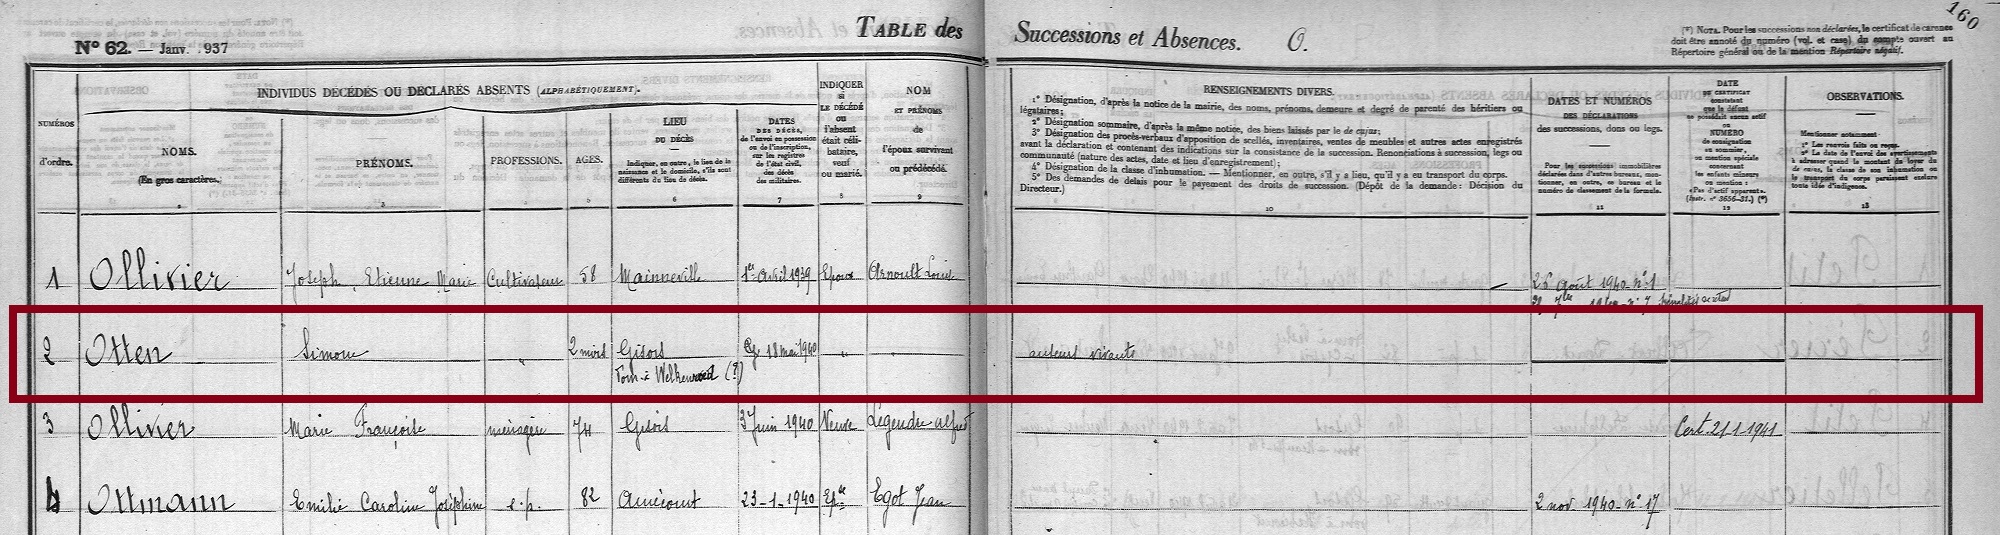 160
TABLE des Successions et Absences. O.
N° 62. — Janv. 937
(*) NOTA. Pour les successions non déclarées, le certificat de carence
doit être annoté du numéro (vol. et case) du compte ouvert au
Répertoire général ou de la mention Répertoire négatif.
INDIVIDUS DÉCÉDÉS OU DÉCLARÉS ABSENTS (ALPHABÉTIQUEMENT).
NUMÉROS
d'ordre.
NOMS.
(En gros caractères.)
PRÉNOMS.
3
PROFESSIONS.
AGES.
LIEU
DU DÉCÈS
Indiquer, en outre, le lieu de
naissance et le domicile, s'ils sont
différents du lieu du décès.
6
DATES
DES DÉCÈS,
de l'envoi en possession
ou de l'inscription,
sur les registres
de l'état civil,
des décès
des militaires.
7
INDIQUER
si
LE DÉCÉDÉ
ou
l'absent
était céli-
bataire,
veuf
ou marié.
8
NOM
ET PRÉNOMS
de
l'époux survivant
ou prédécédé.
9
RENSEIGNEMENTS DIVERS.
1° Désignation, d'après la notice de la mairie, des noms, prénoms, demeure et degré de parenté des héritiers ou
légataires;
2° Désignation sommaire, d'après la même notice, des biens laissés par le de cujus;
3° Désignation des procès-verbaux d'apposition de scellés, inventaires, ventes de meubles et autres actes enregistrés
avant la déclaration et contenant des indications sur la consistance de la succession. Renonciations à succession, legs ou
communauté (nature des actes, date et lieu d'enregistrement);
4° Désignation de la classe d'inhumation. — Mentionner, en outre, s'il y a lieu, qu'il y a eu transport du corps.
5° Des demandes de délais pour le payement des droits de succession. (Dépôt de la demande: Décision du
Directeur.)
10
DATES ET NUMÉROS
DES DÉCLARATIONS
des successions, dons ou legs.
Pour les successions immobilières
déclarées dans d'autres bureaux, men-
tionner, en outre, ce bureau et le
numéro de classement de la formule.
11
DATE
DU CERTIFICAT
constatant
que le défunt
ne possédait aucun actif
ou
NUMÉRO
de consignation
au sommier,
ou mention spéciale
concernant
les enfants mineurs
ou mention:
«Pas d'actif apparent».
(Instr. n° 3656-31.) (*)
12
OBSERVATIONS.
Mentionner notamment:
1° Les renvois faits ou reçus.
13
1 Ollivier Joseph, Etienne Marie Cultivateur 58 Mainneville 1er Avril 1939 Epoux Arnoult Louise 26 Août 1940 n° 1
2 Otten Simone " 2 mois Gisors 18 mai 1940 " auteurs vivants
Dom. à Welkenraed (?)
3 Ollivier Marie Françoise ménagère 74 Gisors 3 Juin 1940 Veuve Légendre Alfred Cert. 21-1-1941
4 Ottmann Emilie Caroline Joséphine s.p. 82 Amécourt 23-1-1940 Epse Egot Jean 2 nov. 1940 - n° 17